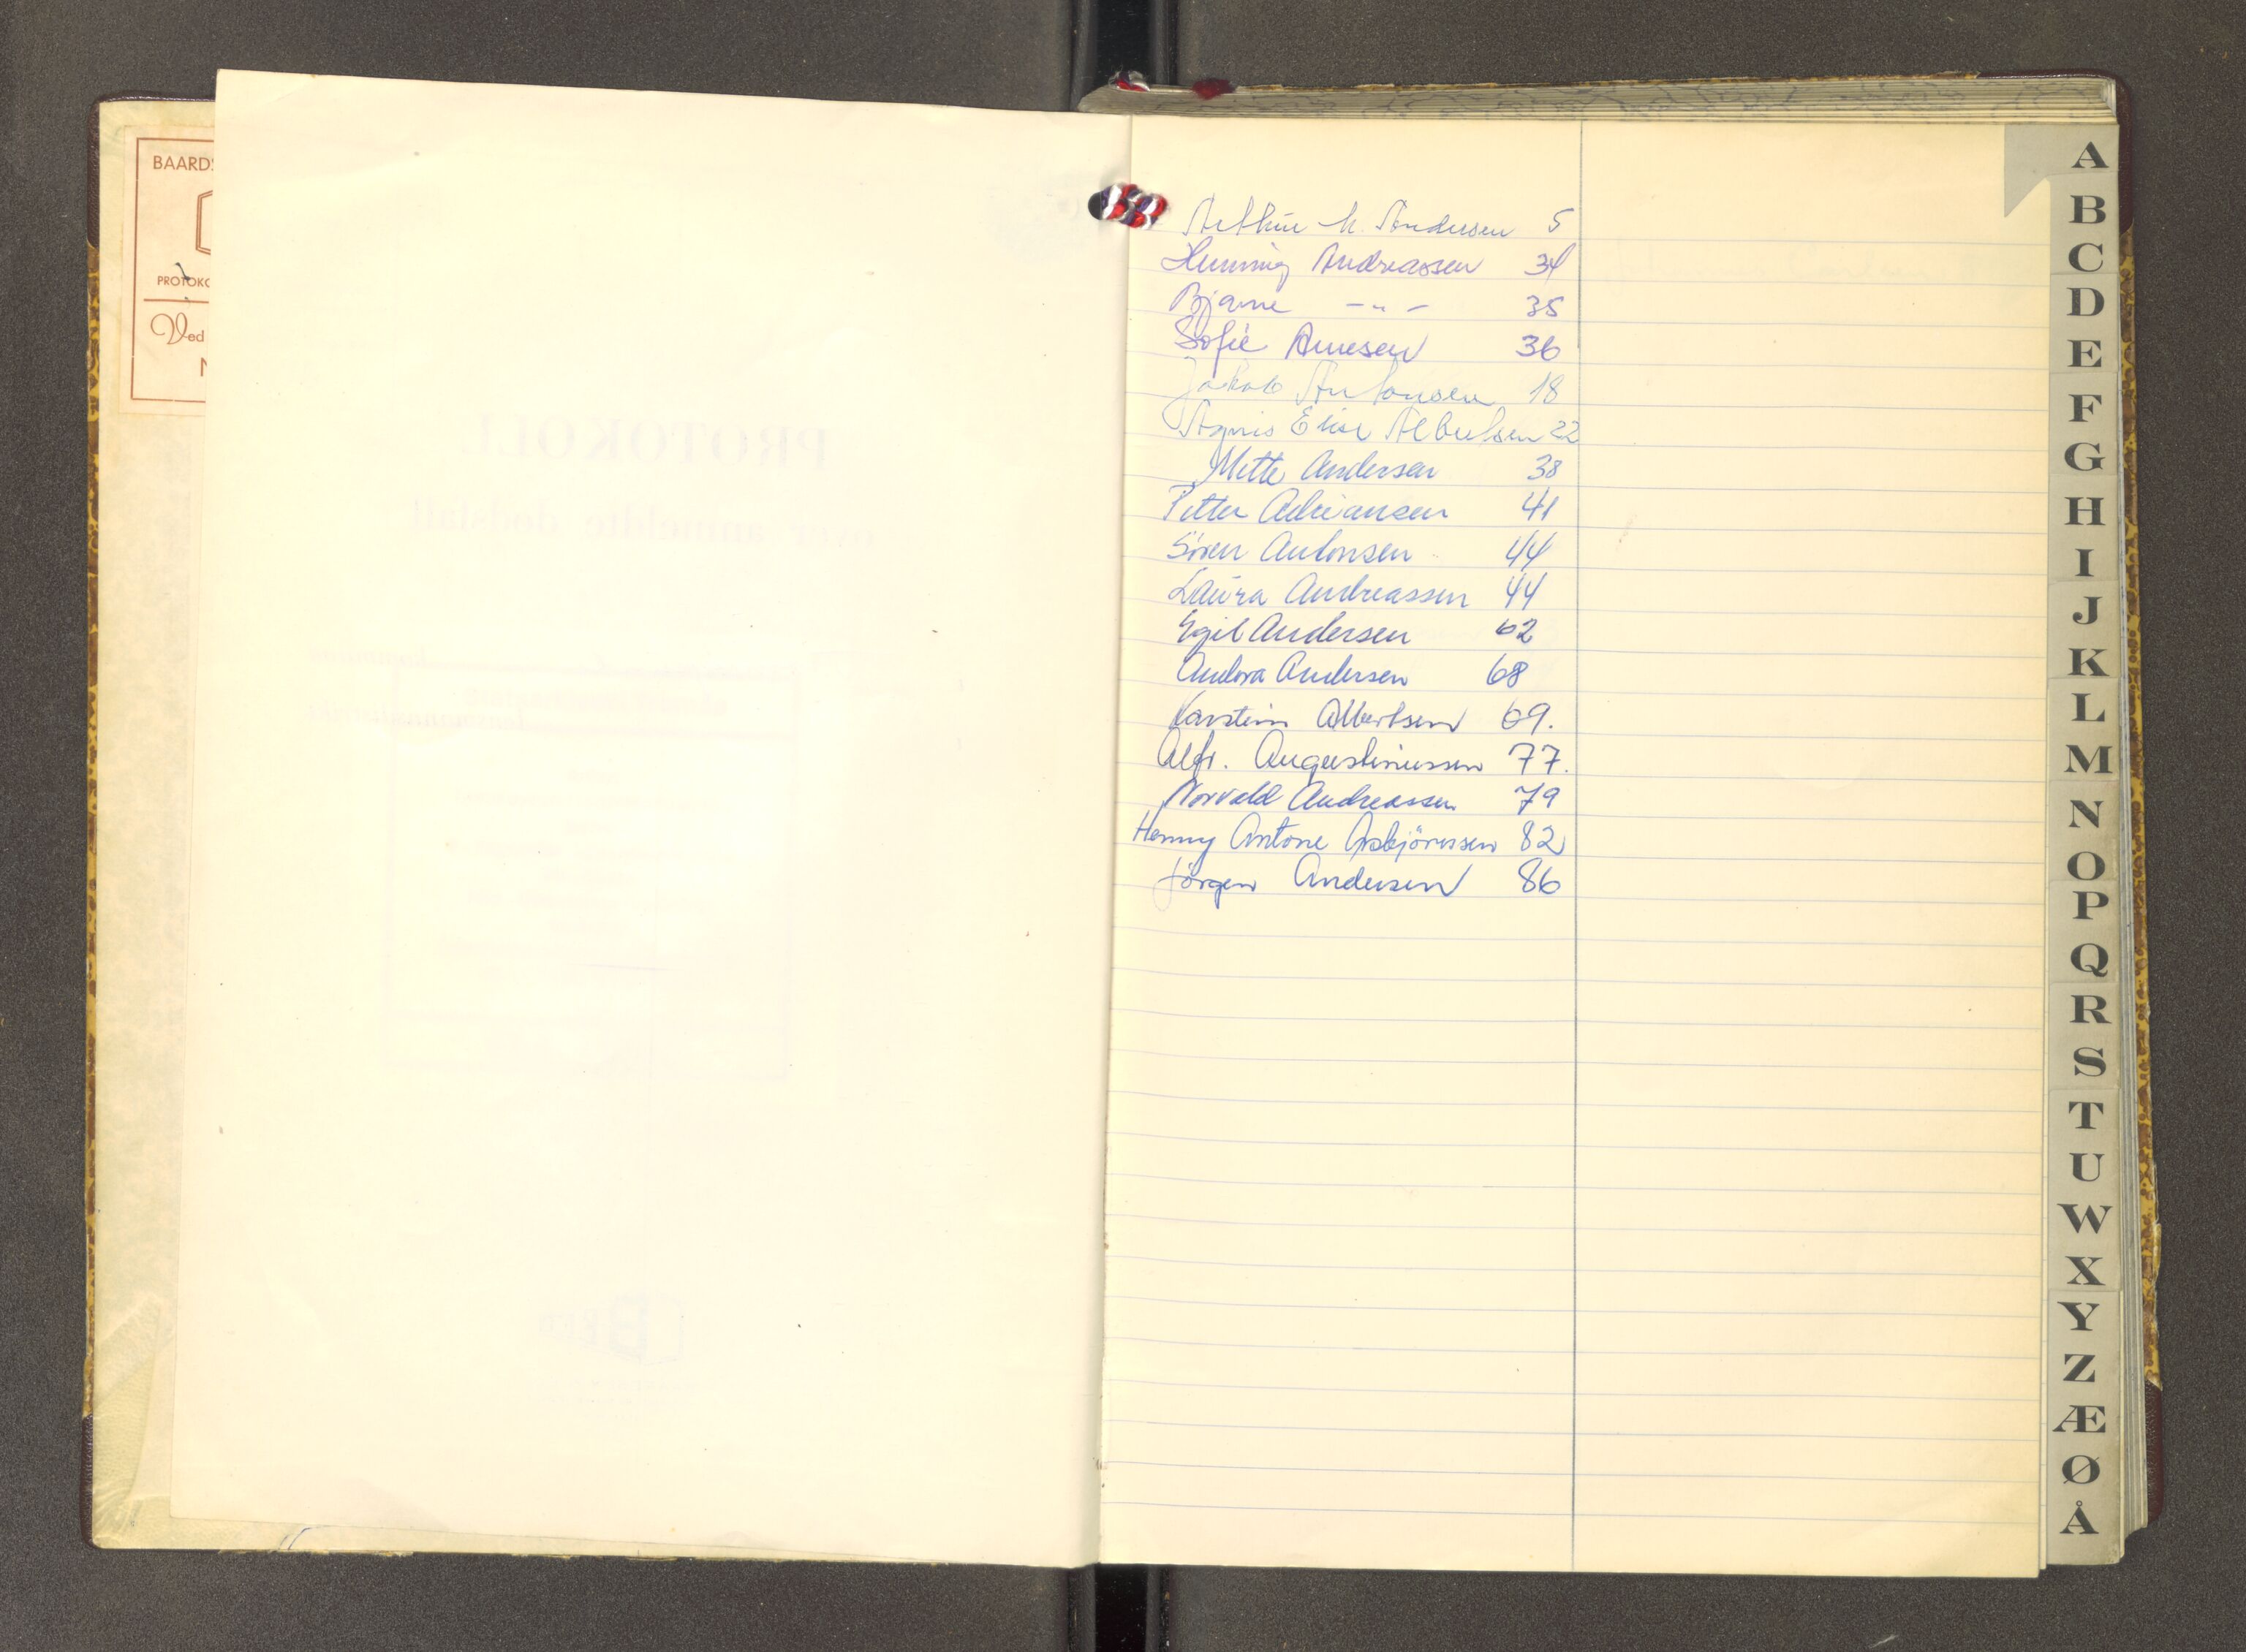 BAARDS
PROTOKO
Ved
N
PROTOKOLL
over anmeldte dødsfall
Arthur M. Andersen 5
Henning Andreassen 34
Bjarne -"- 35
Sofie Arnesen 36
Jakob Antonsen 18
Agnis Elise Albertsen 22
Mette Andersen 38
Petter Adriansen 41
Sören Antonsen 44
Laura Andreassen 44
Egil Andersen 62
Andora Andersen 68
Karstein Albertsen 69.
Alfr. Augustinussen 77.
Norvald Andreassen 79
Henny Antone Asbjörnssen 82
Jörgen Andersen 86
A
B
C
D
E
F
G
H
I
J
K
L
M
N
O
P
Q
R
S
T
U
W
X
Y
Z
Æ
Ø
Å